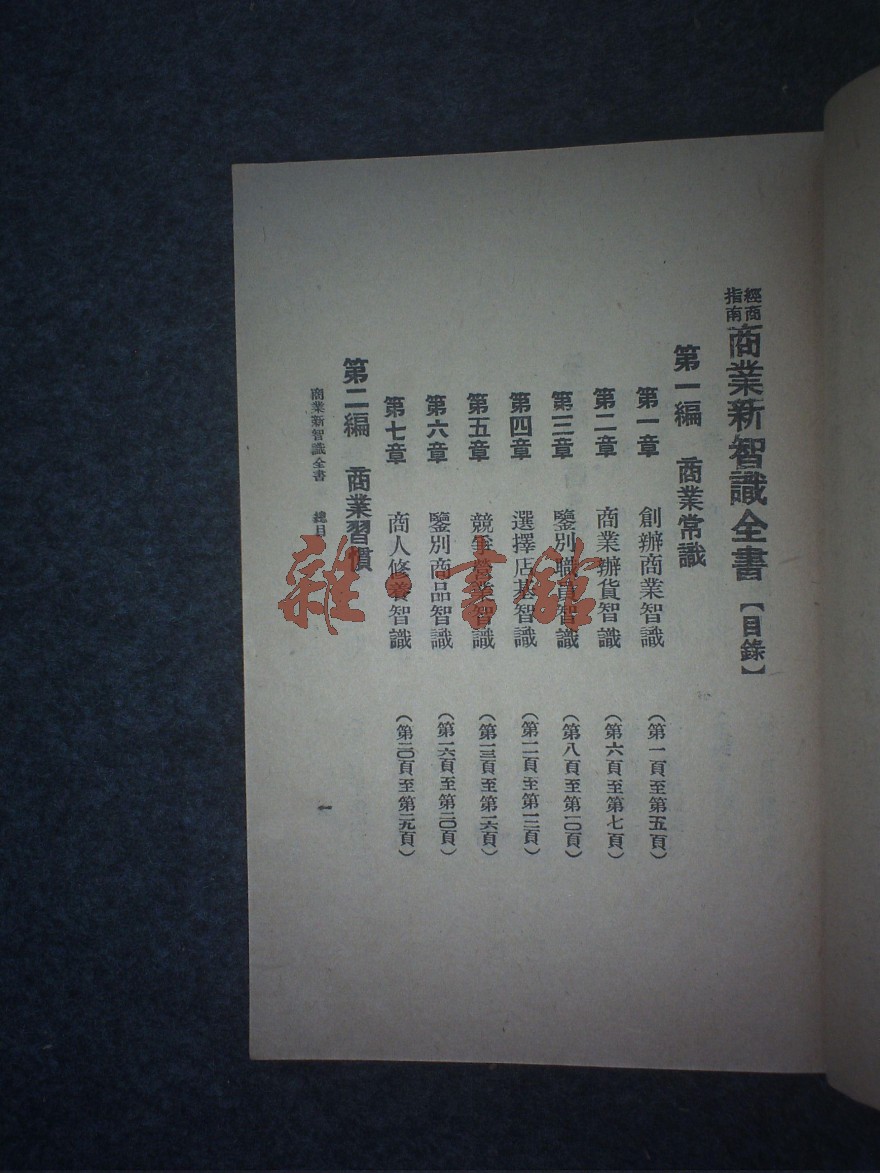 經商指南 商業新智識全書【目錄】
第一編 商業常識
第一章 創辦商業智識 (第一頁至第五頁)
第二章 商業辦貨智識 (第六頁至第七頁)
第三章 鑒別職員智識 (第八頁至第一〇頁)
第四章 選擇店基智識 (第一一頁至第一二頁)
第五章 競爭營業智識 (第一三頁至第一六頁)
第六章 鑒別商品智識 (第一六頁至第二〇頁)
第七章 商人修養智識 (第二〇頁至第二九頁)
第二編 商業習慣
商業新智識全書 總目
一
雜·書館